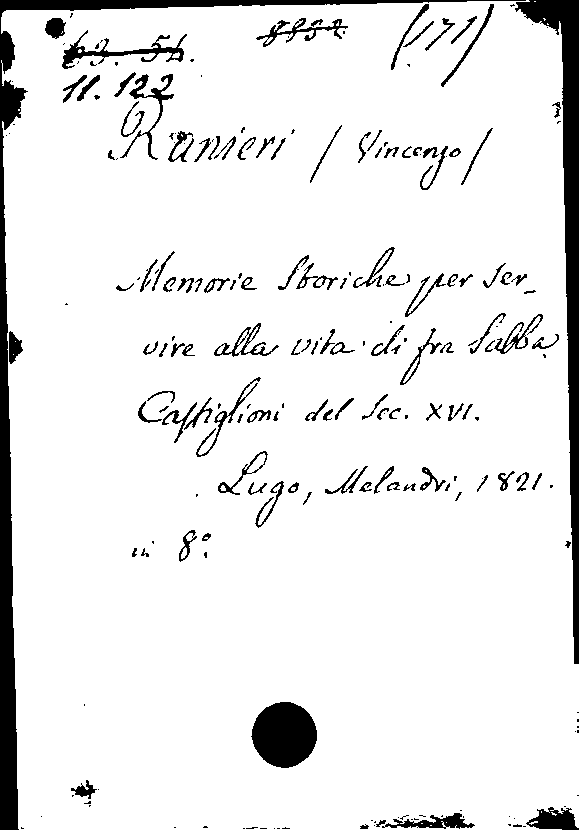 63. 54. 8832 (171)
11. 122
Ranieri / Vincenzo /
Memorie Storiche per ser_
vire alla vita di fra Sabba
Castiglioni del Sec. XVI.
Lugo, Melandri, 1821.
in 8º.